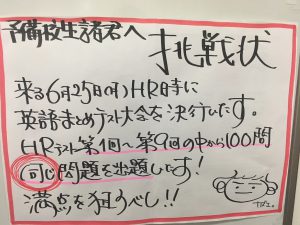 予備校生諸君へ 挑戦状
来る6月25日(月)HR時に
英語まとめテスト大会を決行いたす。
HRテスト第1回〜第9回の中から100問
同じ問題を出題いたす!
満点を狙うべし!!